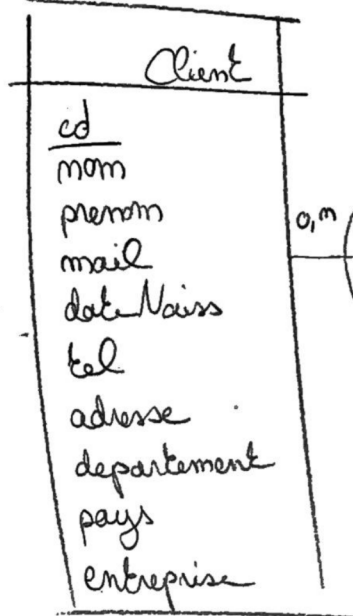 Client
cd
nom
prenom
mail
dateNaiss
tel
adresse
departement
pays
entreprise
0,n